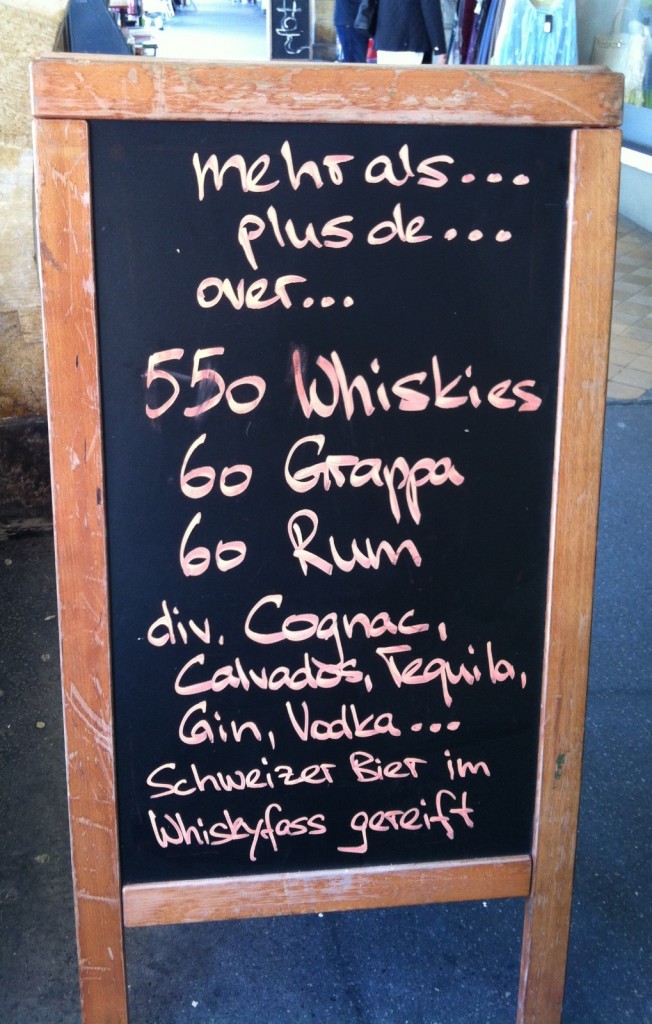 mehr als...
plus de...
over...
550 Whiskies
60 Grappa
60 Rum
div. Cognac,
Calvados, Tequila,
Gin, Vodka...
Schweizer Bier im
Whiskyfass gereift